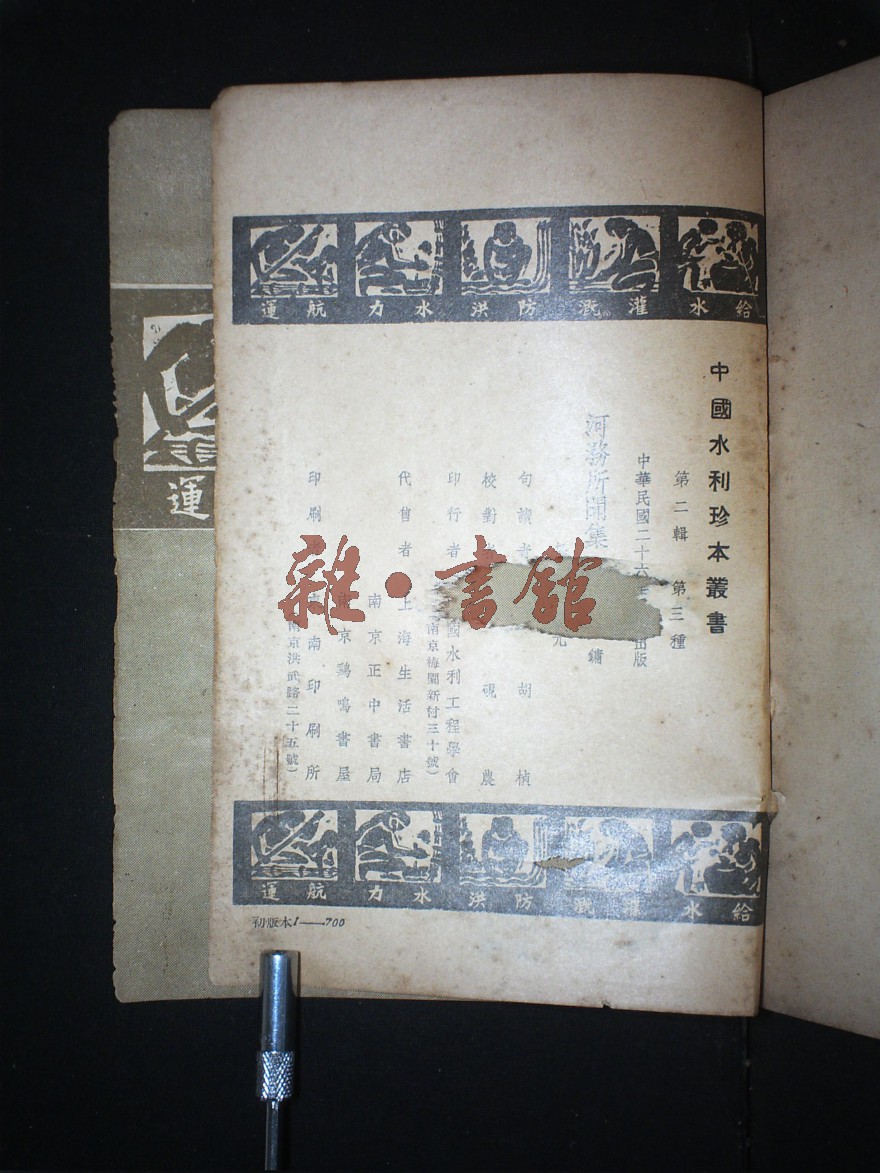 給水 灌溉 防洪 水力 航運
中國水利珍本叢書
第二輯 第三種
中華民國二十六年 出版
河務所聞集
鏞
元
句讀者 胡楨
校對者 硯農
印行者 國水利工程學會
南京梅園新村三十號）
代售者 上海生活書店
南京正中書局
南京鷄鳴書屋
印刷 南印刷所
南京洪武路二十五號）
給水 灌溉 防洪 水力 航運
初版本1——700
運
雜·書館